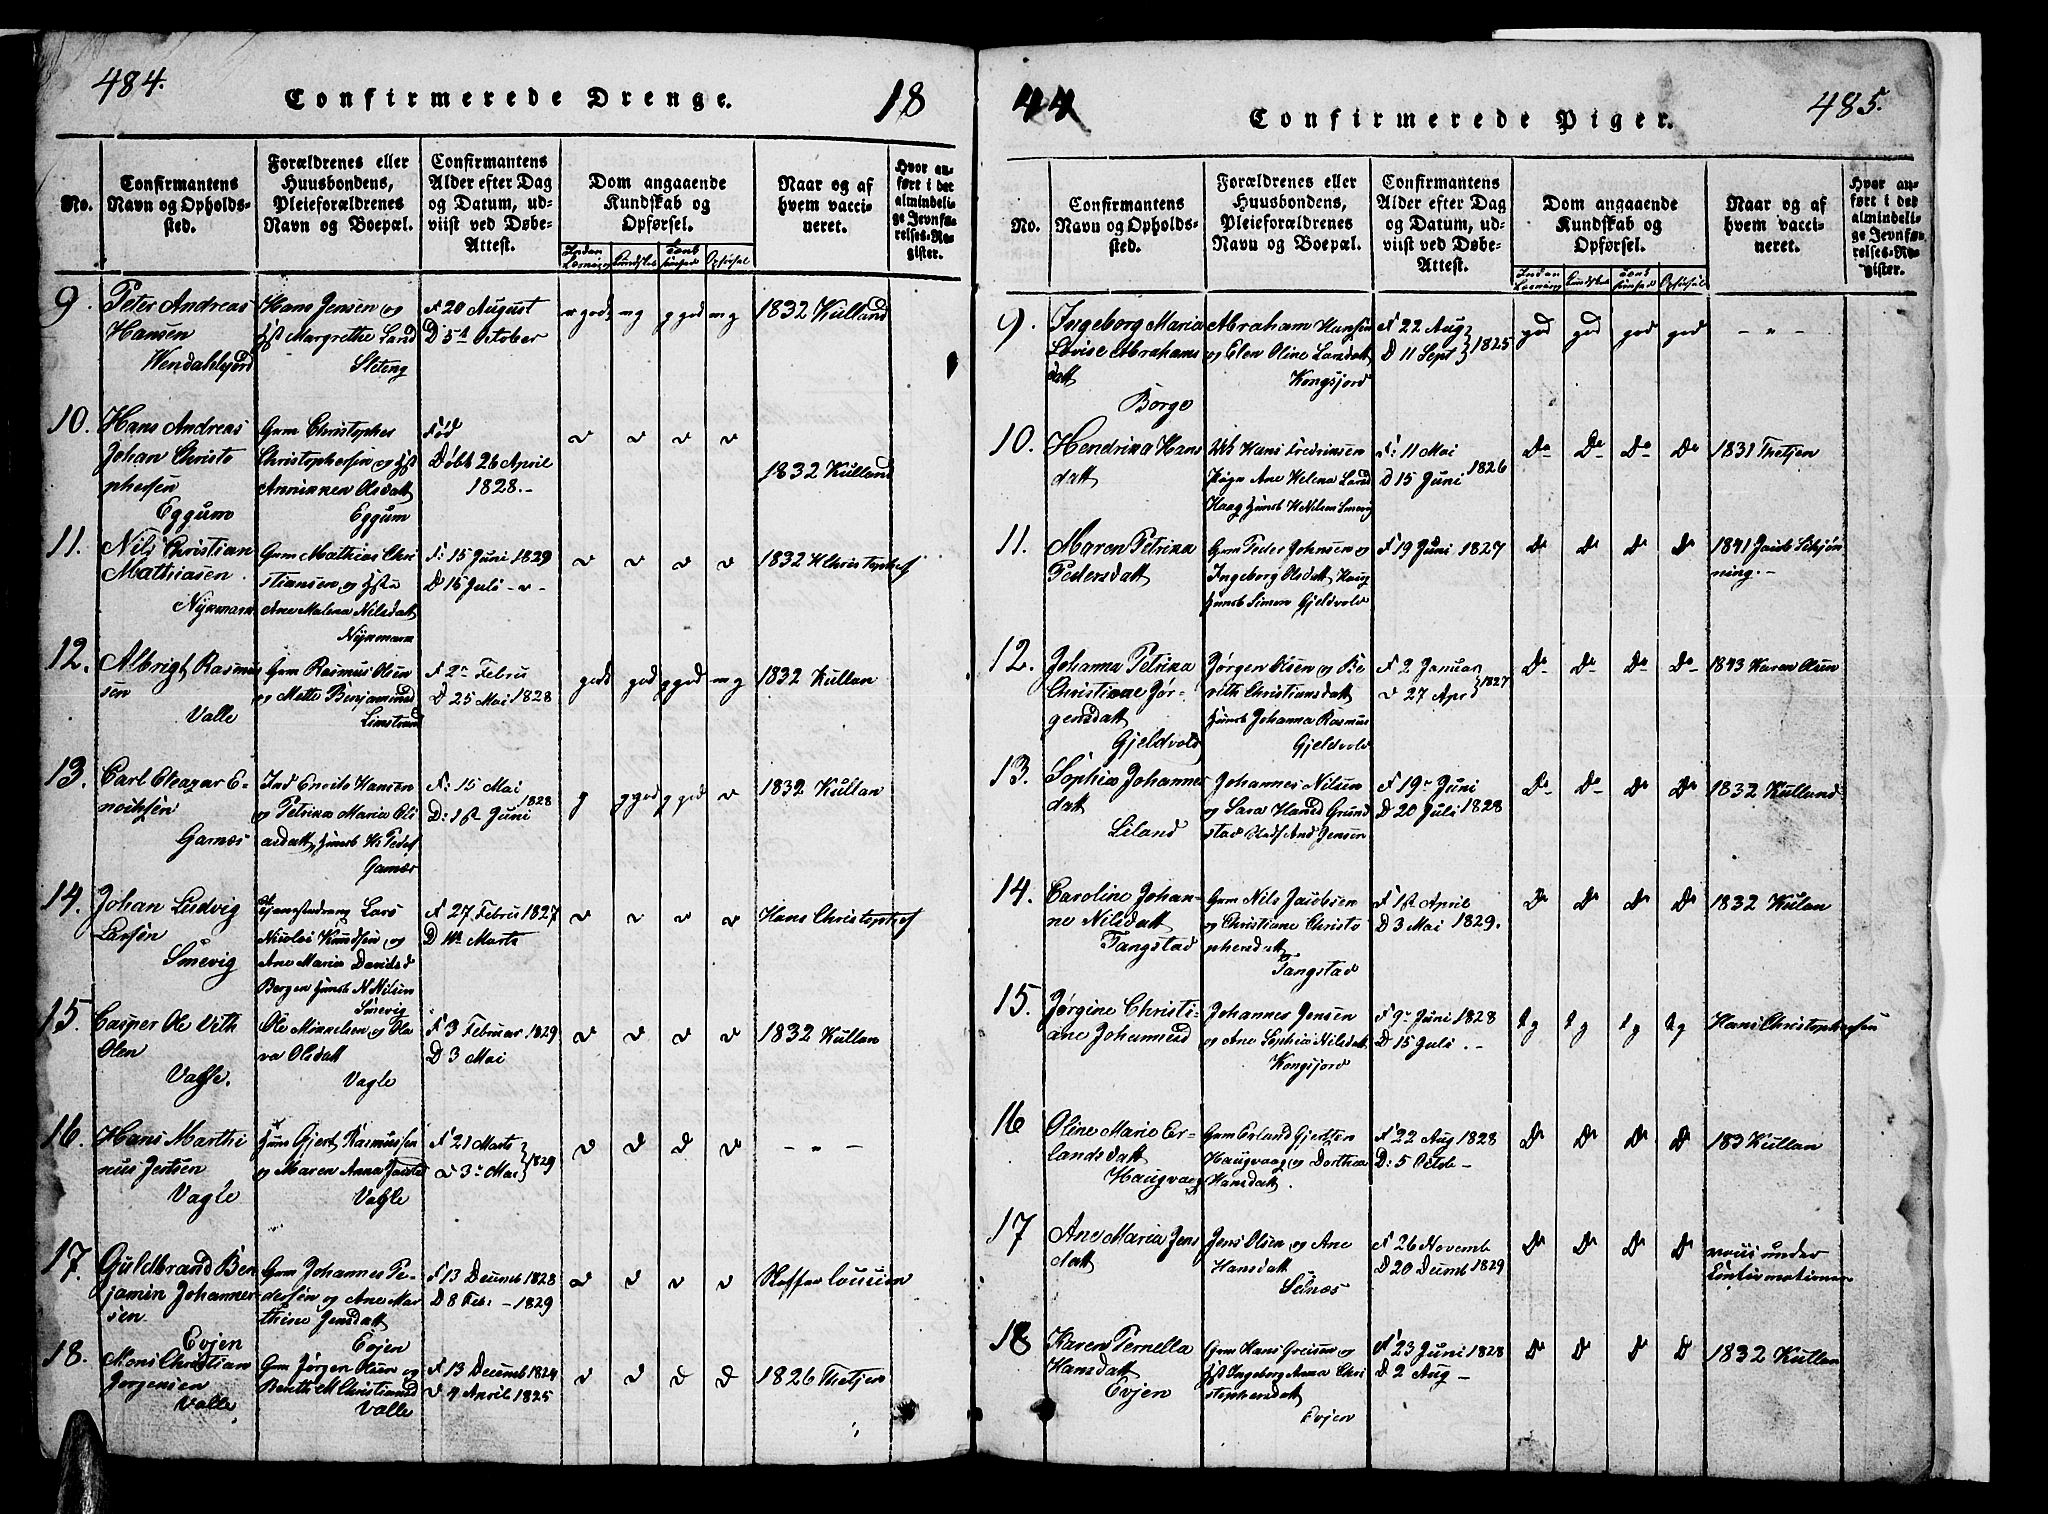 484.
Confirmerede Drenge.
18
No.
Confirmantens
Navn og Opholds-
sted.
Forældrenes eller
Huusbondens,
Pleieforældrenes
Navn og Boepæl.
Confirmantens
Alder efter Dag
og Datum, ud-
viist ved Døbe-
Attest.
Dom angaaende
Kundskab og
Opførsel.
Naar og af
hvem vacci-
neret.
Hvor an-
ført i det
almindeli-
ge Jevnfø-
relses-Re-
gister.
9.
Peter Andreas
Hansen
Hans Jensen og
Margrethe Land
Sleteng
F 20 August
D 5t October
1832 Kulland
10.
Hans Andreas
Johan Christo
phersen
Eggum
Gm Christopher
Christophersen og
Annikken Olsdatt
Eggum
Fød
Døbt 26 April
1828.-
v v v v
1832 Kulland
11.
Nils Christian
Mathiasen.
Nykmark
Gm Mathias Chri
stiansen og
Ane Malena Nilsdatt
Nykmark
F: 15 Juni 1829
D 15 Juli - v -
v v v v
1832 H Christophers
12.
Albrigt Rasmus
sen
Valle
Gm Rasmus Olsen
og Mette Benjaminsd
Limstrand
F 2n Febru
D 25 Mai 1828
god god g god mg
1832 Kullan
13.
Carl Eleazar E-
nochsen
Garnæs
og Petrika Maria Oli
Garnæs
F: 15 Mai
D: 1st Juni 1828
g g god g god v
1832 Kullan
14.
Johan Ludvig
Larsen
Smevig
Lars
Nicolai Knudsen og
Ane Maria Davidsd
Bergen N Nilsen
Smevig
F 27 Febru 1827
D Marts
v v v v
Hans Christophers
15.
Casper Ole Vith
Olen
Vagle.
Ole Mikkelsen og Ola
va Olsdatt
Vagle
F 3 Februar 1829
D 3 Mai
v v v v
1832 Kullan
16.
Hans Marthi
nus Jertsen
Vagle
Gjert Rasmussen
og Maren Anna
Vagle
F 21 Marts
v 3n Mai 1829
v v v v
- " -
17.
Guldbrand Ben
jamin Johanne-
sen
Evjen
Gm Johannes Pe-
dersen og Ane Mar
thine Jensdatt
Evjen
F 13 Decemb 1828
D 8 Feb: - 1829
v v v v
18.
Mons Christian
Jørgensen
Valle
Gm Jørgen Olsen og
Berith M Christiansd
Valle
F 13 Decemb 1824
D 4 April 1825
v v v v
1826 Thetjen
44
Confirmerede Piger.
485.
No.
Confirmantens
Navn og Opholds-
sted.
Forældrenes eller
Huusbondens,
Pleieforældrenes
Navn og Boepæl.
Confirmantens
Alder efter Dag
og Datum, ud-
viist ved Døbe-
Attest.
Dom angaaende
Kundskab og
Opførsel.
Naar og af
hvem vacci-
neret.
Hvor an-
ført i det
almindeli-
ge Jevnfø-
relses-Re-
gister.
9.
Ingeborg Maria
Lovise Abrahams
datt
Borge
Abraham Hansen
og Elen Oline Larsdatt
Kongsjord
F 22 Aug
D 11 Sept 1825
god god god god
- " -
10.
Hendrika Hans
datt
Hans Fredriksen
Pige Ane Helena Land
F: 11 Mai
D 15 Juni 1826
Do Do Do Do
1831 Thetjen
11.
Maren Petrika
Pedersdatt
Gm Peder Johnsen og
Ingeborg Olsdatt Haug
Simon Gjeldvold
F 19 Juni 1827
Do Do Do Do
12.
Johanna Petrika
Christiane Jør-
gensdatt
Gjeldvold
Jørgen Olsen og Be
rith Christiansdatt
Johanna Rasmus
Gjeldvold
F 2 Januar
v 27 Apr 1827
Do Do Do Do
1843 Karen Olsen
13.
Sophia Johannes
datt
Liland
Johannes Nilsen
og Sara Hansd Grund
stad And Jensen
F 19n Juni
D 20 Juli 1828
Do Do Do Do
1832 Kulland
14.
Caroline Johan-
ne Nilsdatt
Tangstad
Gm Nils Jacobsen
og Christiane Christo
phersdatt
Tangstad
F 1st April
D 3 Mai 1829.
Do Do Do Do
1832 Kulan
15.
Jørgine Christi-
ane Johannesd
Johannes Jensen
og Ane Sophia Nilsdatt
Kongsjord
F 9n Juni 1828
D 15 Juli . -
tg tg tg tg
Hans Christophersen
16
Oline Marie Er-
landsdatt
Haugvaag
Gm Erland Gjertsen
Haugvaag og Dorthea
Hansdatt.
F 22 Aug 1828
D: 5 Octob -
Do Do Do Do
183 Kullan
17
Ane Maria Jens
datt
Jens Olsen og Ane
Hansdatt
Sennæs
F 26 Novemb
D 20 Decemb 1829
Do Do Do Do
under
Confirmationen
18
Karen Pernella
Hansdatt
Evjen
Gm Hans Greisen og
Ingeborg Anna Chri
stophersdatt
Evjen
F 23 Juni 1828
D 2 Aug -
Do Do Do Do
1832 Kullan